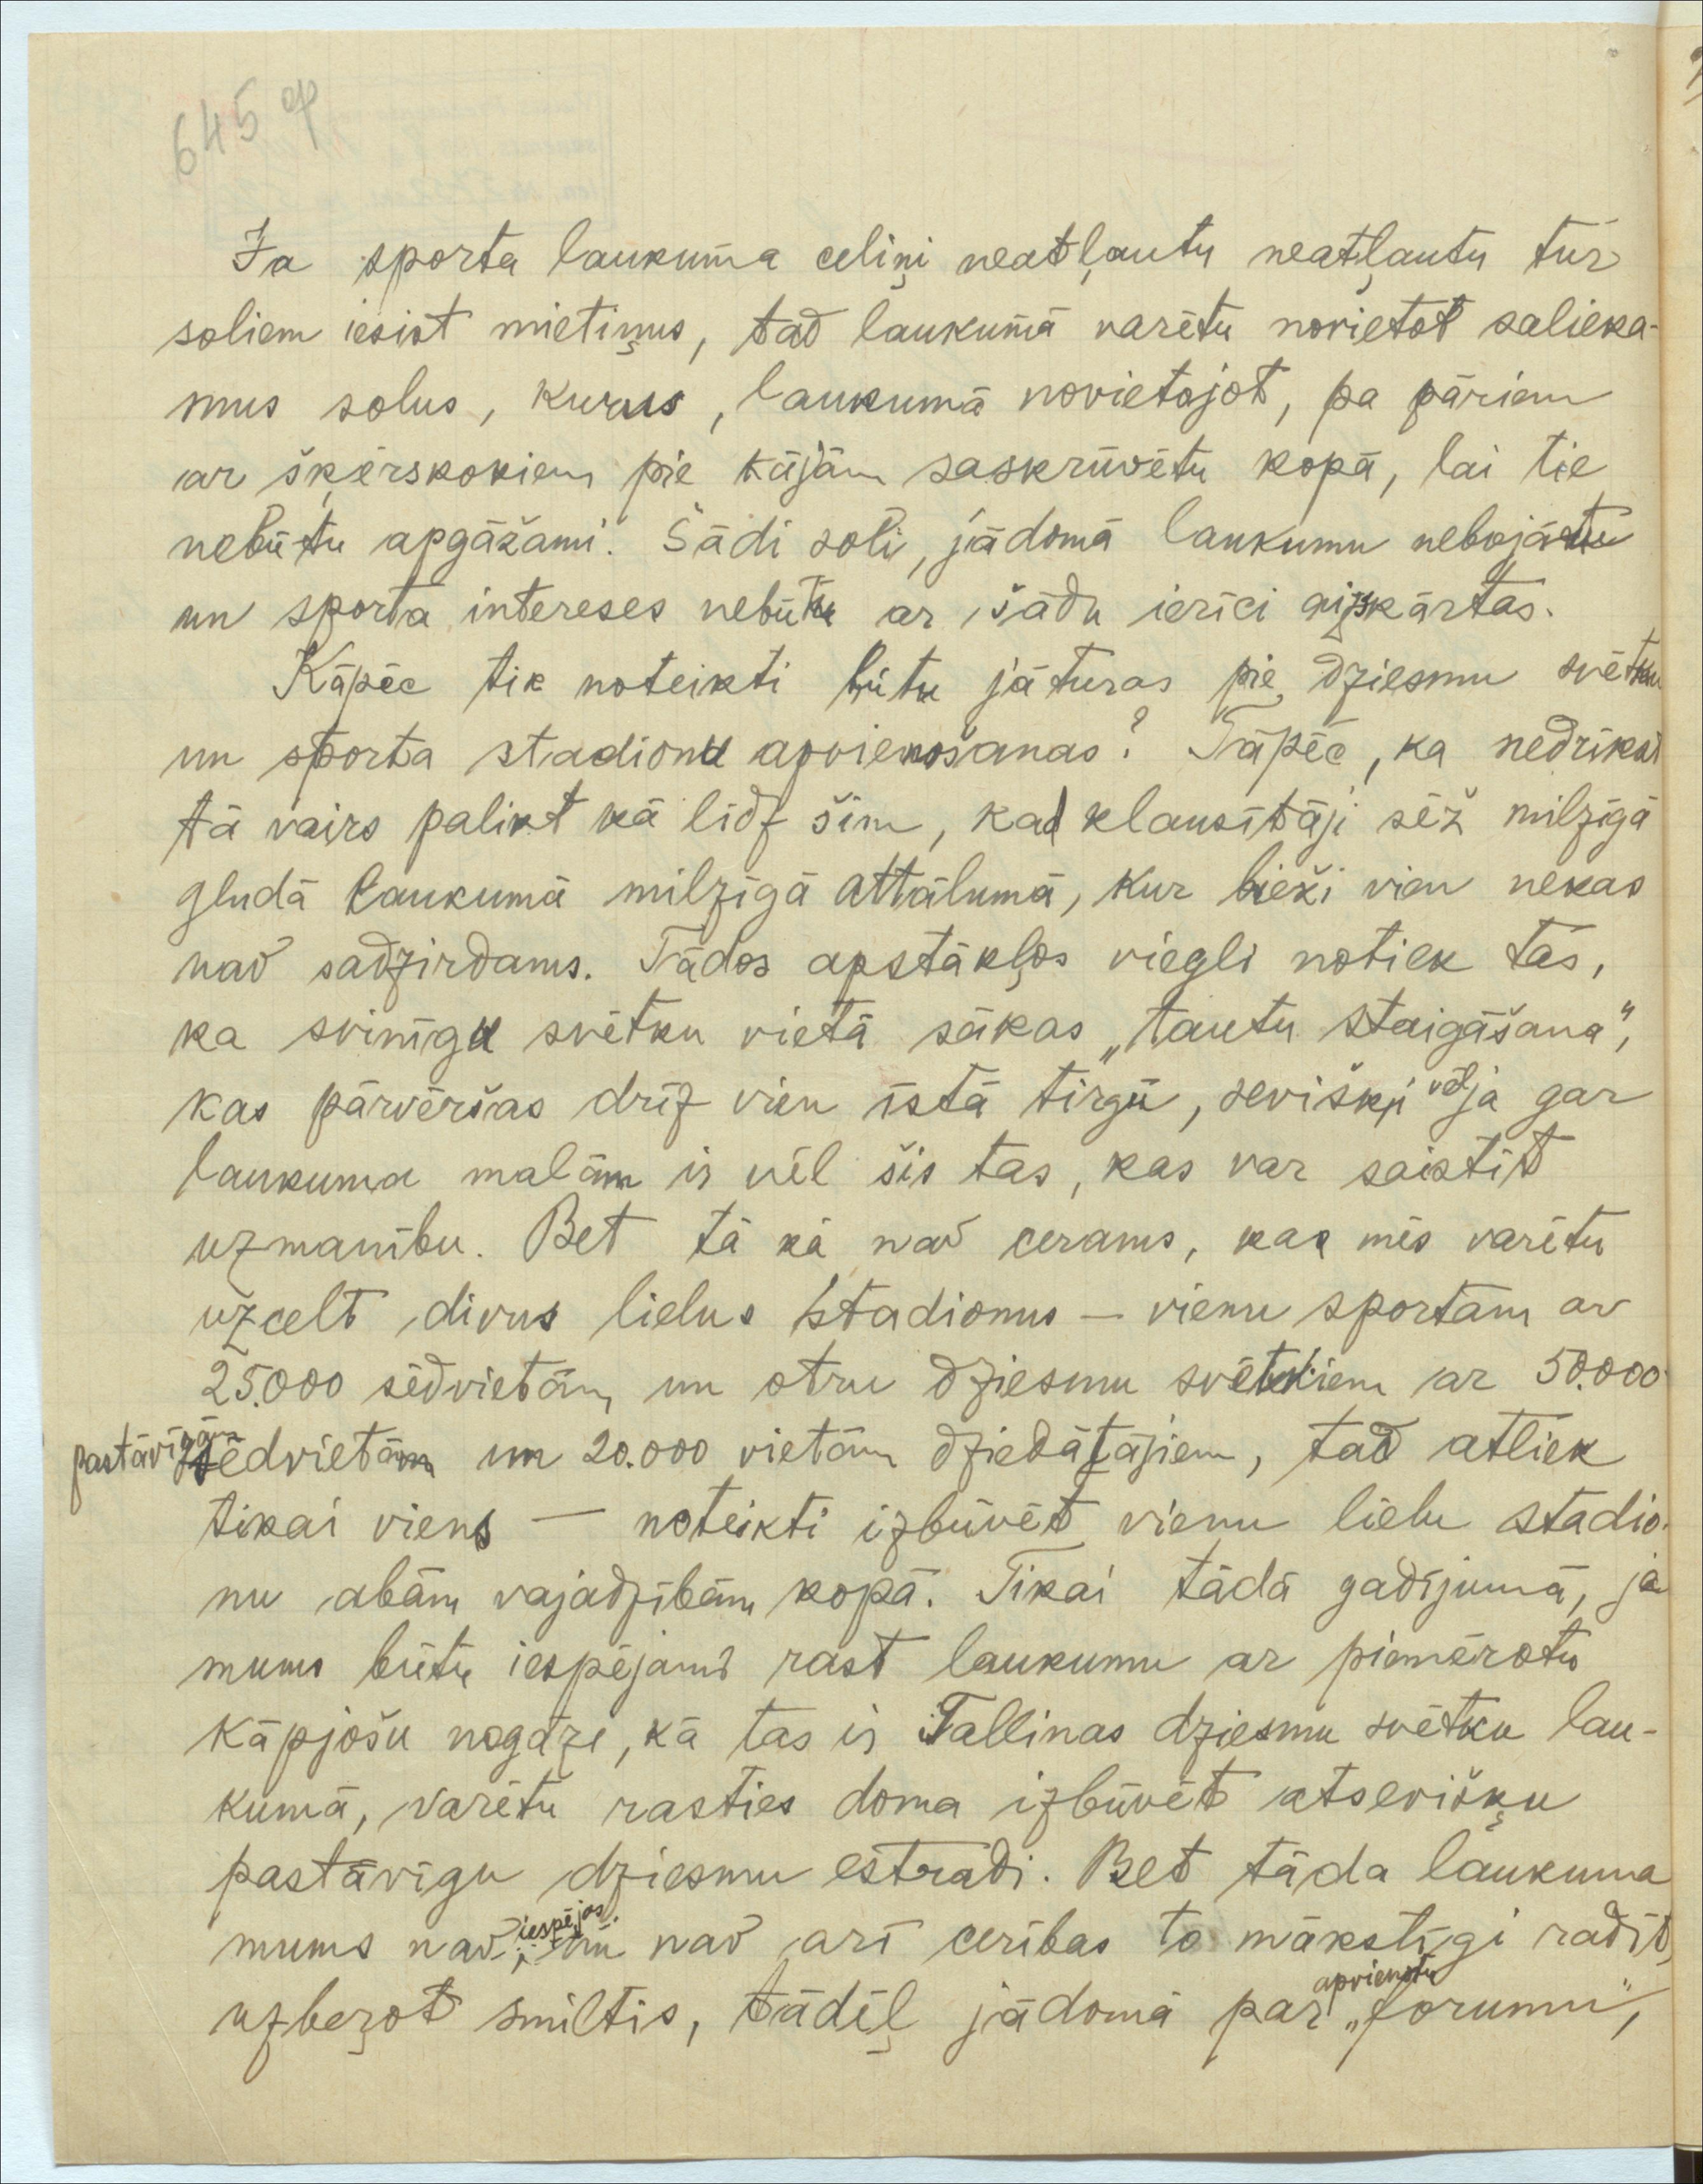 645 φ
Ja sporta laukuma celiņi neatļautu neatļautu tur
soliem iesist mietiņus, tad laukumā varētu novietot salieka-
mus solus, kurus, laukumā novietojot, pa pāriem
ar šķērskokiem pie kājām saskrūvētu kopā, lai tie
nebūtu apgāžami. Šādi soli, jādomā laukumu nebojātu
un sporta intereses nebūtu ar šādu ierīci aizskārtas.
Kāpēc tik noteikti būtu jāturas pie dziesmu svētku
un sporta stadionu apvienošanas? Tāpēc, ka nedrīkst
tā vairs palikt kā līdz šim, kad klausītāji sēž milzīgā
gludā laukumā milzīgā attālumā, kur bieži vien nekas
nav sadzirdams. Tādos apstākļos viegli notiek tas,
ka svinīgu svētku vietā sākas „tautu staigāšana",
kas pārvēršas drīz vien īstā tirgū, sevišķi vēl ja gar
laukuma malām ir vēl šis tas, kas var saistīt
uzmanību. Bet tā kā nav cerams, kas mēs varētu
uzcelt divus lielus stadionus — vienu sportam ar
25.000 sēdvietām un otru dziesmu svētkiem ar 50.000
pastāvīgām sēdvietām un 20.000 vietām dziedātājiem, tad atliek
tikai viens — noteikti izbūvēt vienu lielu stadio-
nu abām vajadzībām kopā. Tikai tādā gadījumā, ja
mums būtu iespējams rast laukumu ar piemērotu
kāpjošu nogāzi, kā tas ir Tallinas dziesmu svētku lau-
kumā, varētu rasties doma izbūvēt atsevišķu
pastāvīgu dziesmu estrādi. Bet tāda laukuma
mums nav, iespējas nav arī cerības to mākslīgi radīt,
uzberot smiltis, tādēļ jādomā par apvienotu „forumu",